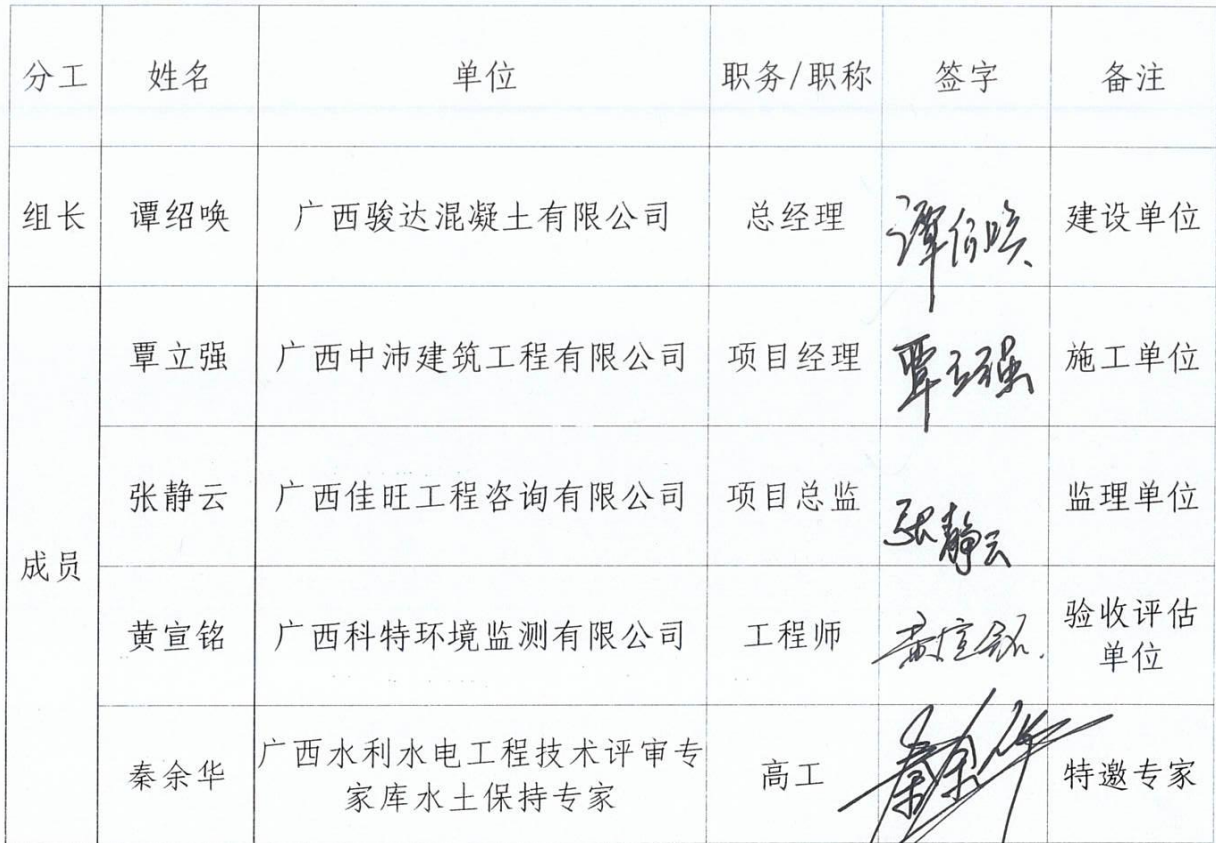 分工 姓名 单位 职务/职称 签字 备注
组长 谭绍唤 广西骏达混凝土有限公司 总经理 谭绍唤 建设单位
成员
覃立强 广西中沛建筑工程有限公司 项目经理 覃立强 施工单位
张静云 广西佳旺工程咨询有限公司 项目总监 张静云 监理单位
黄宣铭 广西科特环境监测有限公司 工程师 黄宣铭 验收评估
单位
秦余华 广西水利水电工程技术评审专
家库水土保持专家 高工 秦余华 特邀专家